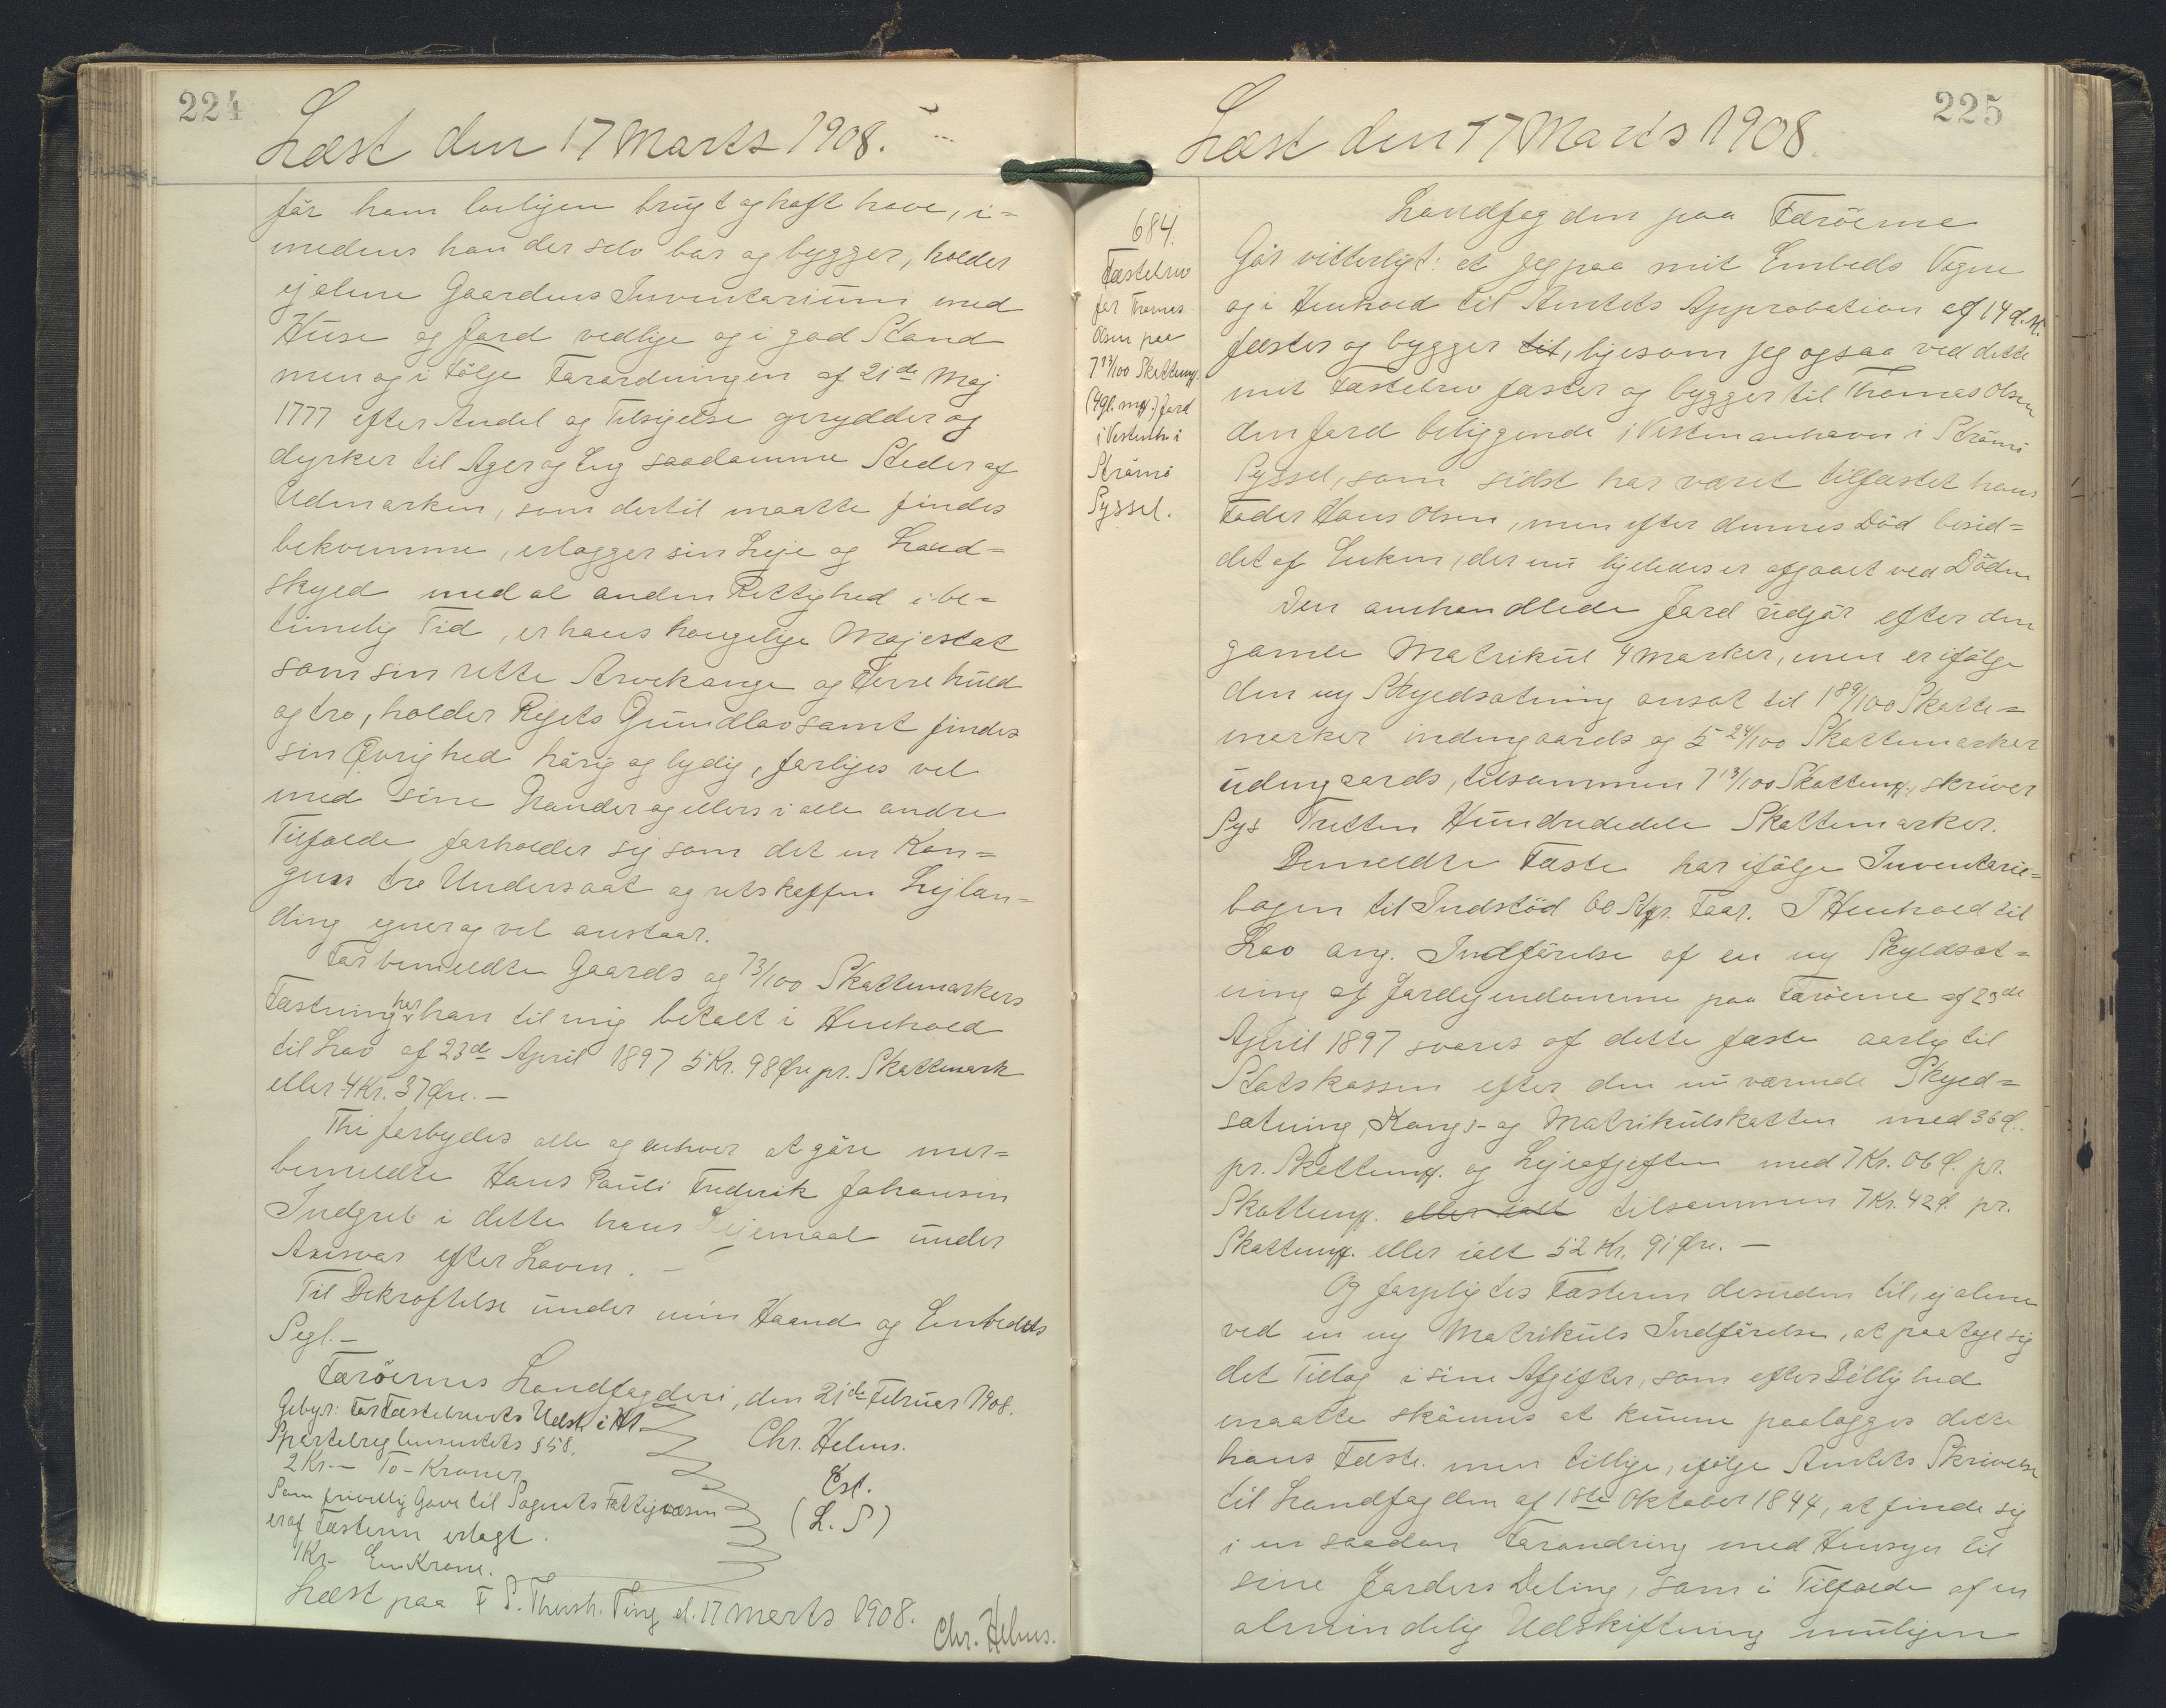 224
Læst den 17 Marts 1908.
før ham lovligen brugt og haft have, i=
medens han der selv bor og bygger, holder
ej alene Gaardens Inventarium med
Huse og Jord vedlige og i god Stand
men og i Følge Forordningen af 21de Maj
1777 efter Andel og Tilsigelse oprydder og
dyrker til Ager og Eng saadanne Steder af
Udmarken, som dertil maatte findes
bekvemme, erlægger sin Leje og Land=
skyld med al anden Rettighed i be=
timelig Tid, er hans kongelige Majestæt
som sin rette Arvekonge og Herre huld
og tro, holder Rigets Grundlov samt findes
sin Øvrighed hørig og lydig, forliges vel
med sine Grander og ellers i alle andre
Tilfælde forholder sig som det en Kon=
gens tro Undersaat og retskaffen Lejlæn=
ding egner og vel anstaar.
For bemeldte Gaards og 73/100 Skattemarkers
Fæstning har han til mig betalt i Henhold
til Lov af 23de April 1897 5 Kr. 98 Øre pr. Skattemark
eller 4 Kr. 37 Øre. —
Thi forbydes alle og enhver at gøre mer=
bemeldte Hans Pauli Frederik Johansen
Indgreb i dette hans Lejemaal under
Ansvar efter Loven. —
Til Bekræftelse under min Haand og Embeds
Segl. —
Færøernes Landfogderi, den 21de Februar 1908.
Gebyr: For Fæstebrevets Udst. i Ht.
Sportelreglementets § 58.
2 Kr. — To - Kroner
Som frivillig Gave til Sognets Fattigvæsen
er af Fæsteren erlagt.
1 Kr. En Krone.
Chr. Helms.
Cst.
(L. S)
Læst paa F. S. Thorsh. Ting d. 17 Marts 1908.
Chr. Helms.
225
Læst den 17 Marts 1908.
684.
Fæstebrev
for Thomas
Olsen paa
7 13/100 Skattemk.
(4 gl. mk.) Jord
i Vestmh. i
Strømø
Syssel.
Landfogden paa Færøerne
Gør vitterligt: at jeg paa mit Embeds Vegne
og i Henhold til Amtets Approbation af 14 d. M.
fæster og bygger til, ligesom jeg ogsaa ved dette
mit Fæstebrev fæster og bygger til Thomas Olsen
den Jord beliggende i Vestmanhavn i Strømø
Syssel, som sidst har været tilfæstet hans
Fader Hans Olsen, men efter dennes Død besid=
det af Enken, der nu ligeledes er afgaaet ved Døden
Den omhandlede Jord udgør efter den
gamle Matrikul 4 Marker, men er ifølge
den ny Skyldsætning ansat til 1 89/100 Skatte=
marker indengaards og 5 24/100 Skattemarker
udengaards, tilsammen 7 13/100 Skattemk., skriver
Syv Tretten Hundrededele Skattemarker.
Bemeldte Fæste har ifølge Inventarie=
bogen til Indstød 60 Stkr. Faar. I Henhold til
Lov ang. Indførelse af en ny Skyldsæt=
ning af Jordejendomme paa Færøerne af 23de
April 1897 svares af dette Fæste aarlig til
Statskassen efter den nu værende Skyld=
sætning, Kongs- og Matrikulskatten med 36 Ø.
pr. Skattemk. og Lejeafgiften med 7 Kr. 06 Ø. pr.
Skattemk. eller ialt tilsammen 7 Kr. 42 Ø. pr.
Skattemk. eller ialt 52 Kr. 91 Øre. —
Og forpligtes Fæsteren desuden til, ej alene
ved en ny Matrikuls Indførelse, at paatage sig
det Tillæg i sine Afgifter, som efter Billighed
maatte skønnes at kunne paalægges dette
hans Fæste, men tillige, ifølge Amtets Skrivelse
til Landfogden af 18de Oktober 1844, at finde sig
i en saadan Forandring med Hensyn til
sine Jorders Deling, som i Tilfælde af en
almindelig Udskiftning muligen